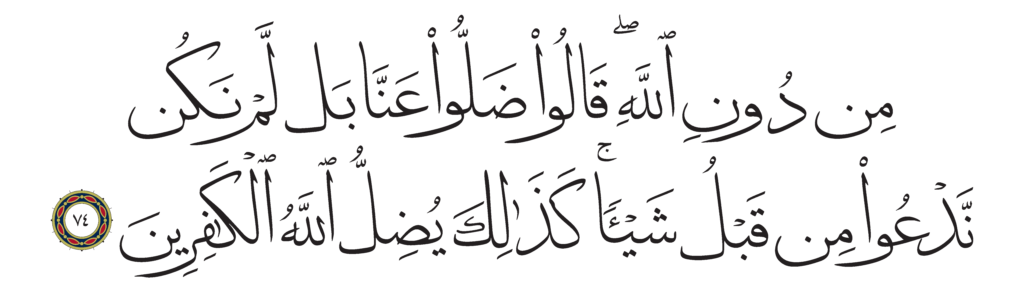 مِن دُونِ ٱللَّهِۖ قَالُوا۟ ضَلُّوا۟ عَنَّا بَل لَّمْ نَكُن
نَّدْعُوا۟ مِن قَبْلُ شَيْـًٔاۚ كَذَٰلِكَ يُضِلُّ ٱللَّهُ ٱلْكَـٰفِرِينَ ٧٤